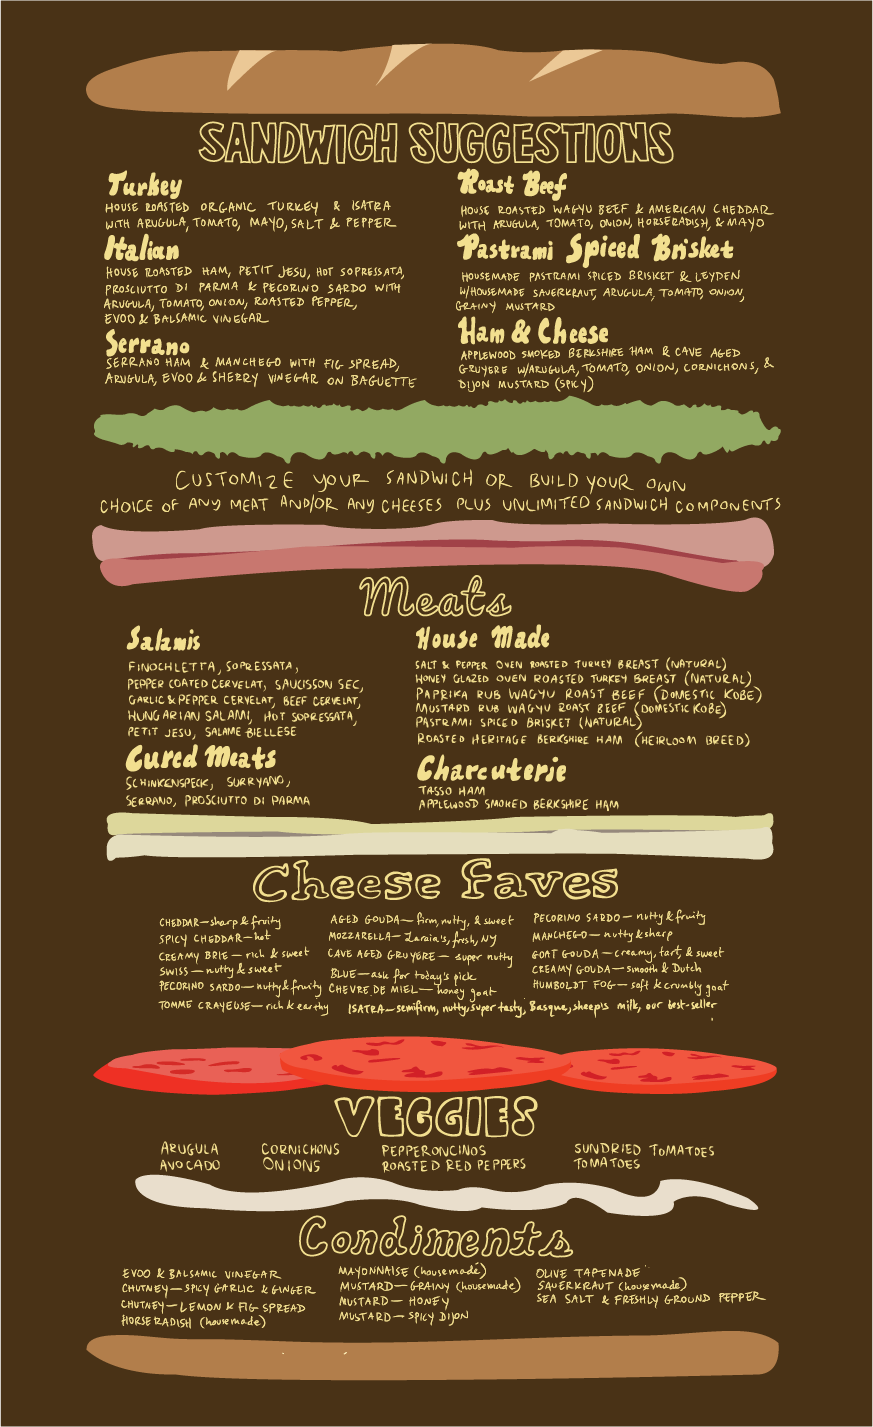 SANDWICH SUGGESTIONS
Turkey
HOUSE ROASTED ORGANIC TURKEY & ISATRA
WITH ARUGULA, TOMATO, MAYO, SALT & PEPPER
Italian
HOUSE ROASTED HAM, PETIT JESU, HOT SOPRESSATA,
PROSCIUTTO DI PARMA & PECORINO SARDO WITH
ARUGULA, TOMATO, ONION, ROASTED PEPPER,
EVOO & BALSAMIC VINEGAR
Serrano
SERRANO HAM & MANCHEGO WITH FIG SPREAD,
ARUGULA, EVOO & SHERRY VINEGAR ON BAGUETTE
Roast Beef
HOUSE ROASTED WAGYU BEEF & AMERICAN CHEDDAR
WITH ARUGULA, TOMATO, ONION, HORSERADISH, & MAYO
Pastrami Spiced Brisket
HOUSEMADE PASTRAMI SPICED BRISKET & LEYDEN
W/HOUSEMADE SAUERKRAUT, ARUGULA, TOMATO, ONION,
GRAINY MUSTARD
Ham & Cheese
APPLEWOOD SMOKED BERKSHIRE HAM & CAVE AGED
GRUYERE W/ARUGULA, TOMATO, ONION, CORNICHONS, &
DIJON MUSTARD (SPICY)
CUSTOMIZE YOUR SANDWICH OR BUILD YOUR OWN
CHOICE OF ANY MEAT AND/OR ANY CHEESES PLUS UNLIMITED SANDWICH COMPONENTS
Meats
Salamis
FINOCHLETTA, SOPRESSATA,
PEPPER COATED CERVELAT, SAUCISSON SEC,
GARLIC & PEPPER CERVELAT, BEEF CERVELAT,
HUNGARIAN SALAMI, HOT SOPRESSATA,
PETIT JESU, SALAME BIELLESE
Cured Meats
SCHINKENSPECK, SURRYANO,
SERRANO, PROSCIUTTO DI PARMA
House Made
SALT & PEPPER OVEN ROASTED TURKEY BREAST (NATURAL)
HONEY GLAZED OVEN ROASTED TURKEY BREAST (NATURAL)
PAPRIKA RUB WAGYU ROAST BEEF (DOMESTIC KOBE)
MUSTARD RUB WAGYU ROAST BEEF (DOMESTIC KOBE)
PASTRAMI SPICED BRISKET (NATURAL)
ROASTED HERITAGE BERKSHIRE HAM (HEIRLOOM BREED)
Charcuterie
TASSO HAM
APPLEWOOD SMOKED BERKSHIRE HAM
Cheese Faves
CHEDDAR—sharp & fruity
SPICY CHEDDAR—hot
CREAMY BRIE—rich & sweet
SWISS—nutty & sweet
PECORINO SARDO—nutty & fruity
TOMME CRAYEUSE—rich & earthy
AGED GOUDA—firm, nutty, & sweet
MOZZARELLA—Laraia's, fresh, NY
CAVE AGED GRUYERE—super nutty
BLUE—ask for today's pick
CHEVRE DE MIEL—honey goat
ISATRA—semifirm, nutty, super tasty, Basque, sheep's milk, our best-seller
PECORINO SARDO—nutty & fruity
MANCHEGO—nutty & sharp
GOAT GOUDA—creamy, tart, & sweet
CREAMY GOUDA—smooth & Dutch
HUMBOLDT FOG—soft & crumbly goat
VEGGIES
ARUGULA
AVOCADO
CORNICHONS
ONIONS
PEPPERONCINOS
ROASTED RED PEPPERS
SUNDRIED TOMATOES
TOMATOES
Condiments
EVOO & BALSAMIC VINEGAR
CHUTNEY—SPICY GARLIC & GINGER
CHUTNEY—LEMON & FIG SPREAD
HORSERADISH (housemade)
MAYONNAISE (housemade)
MUSTARD—GRAINY (housemade)
MUSTARD—HONEY
MUSTARD—SPICY DIJON
OLIVE TAPENADE
SAUERKRAUT (housemade)
SEA SALT & FRESHLY GROUND PEPPER